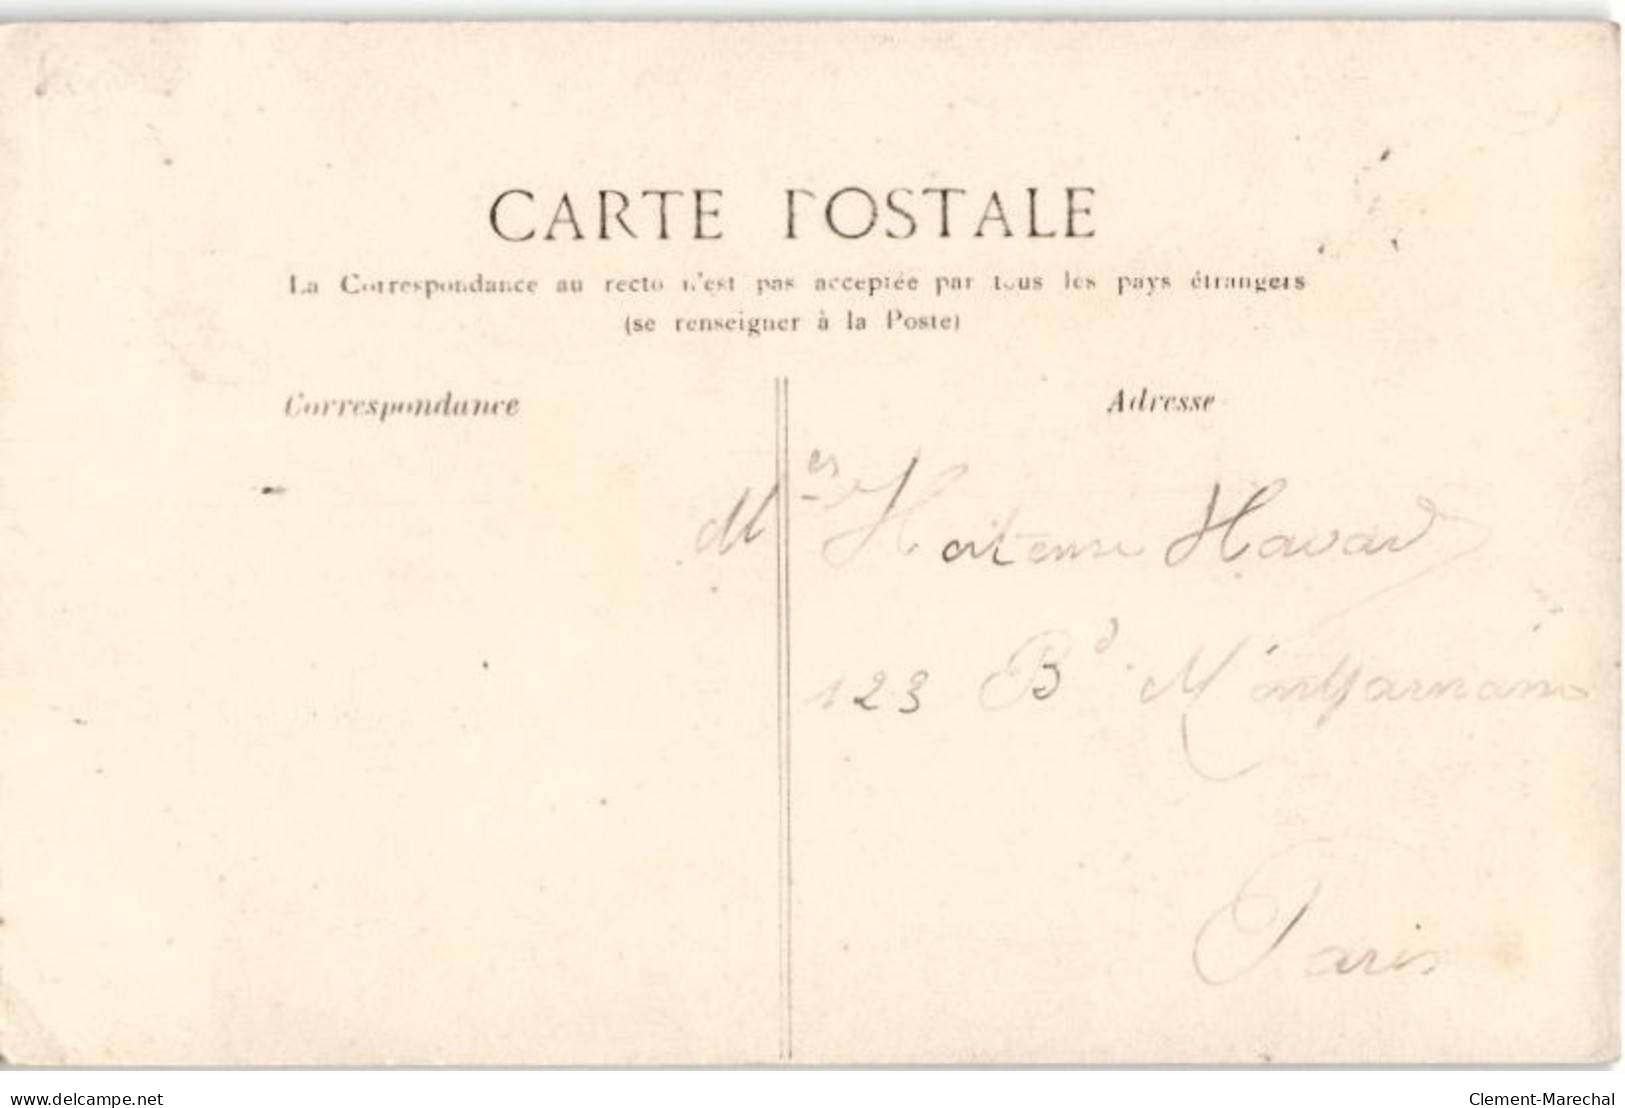 CARTE POSTALE
La Correspondance au recto n'est pas acceptée par tous les pays étrangers
(se renseigner à la Poste)
Correspondance
Adresse
M es Hortense Havard
123 Bd Montparnasse
Paris
www.delcampe.net
Clement-Marechal